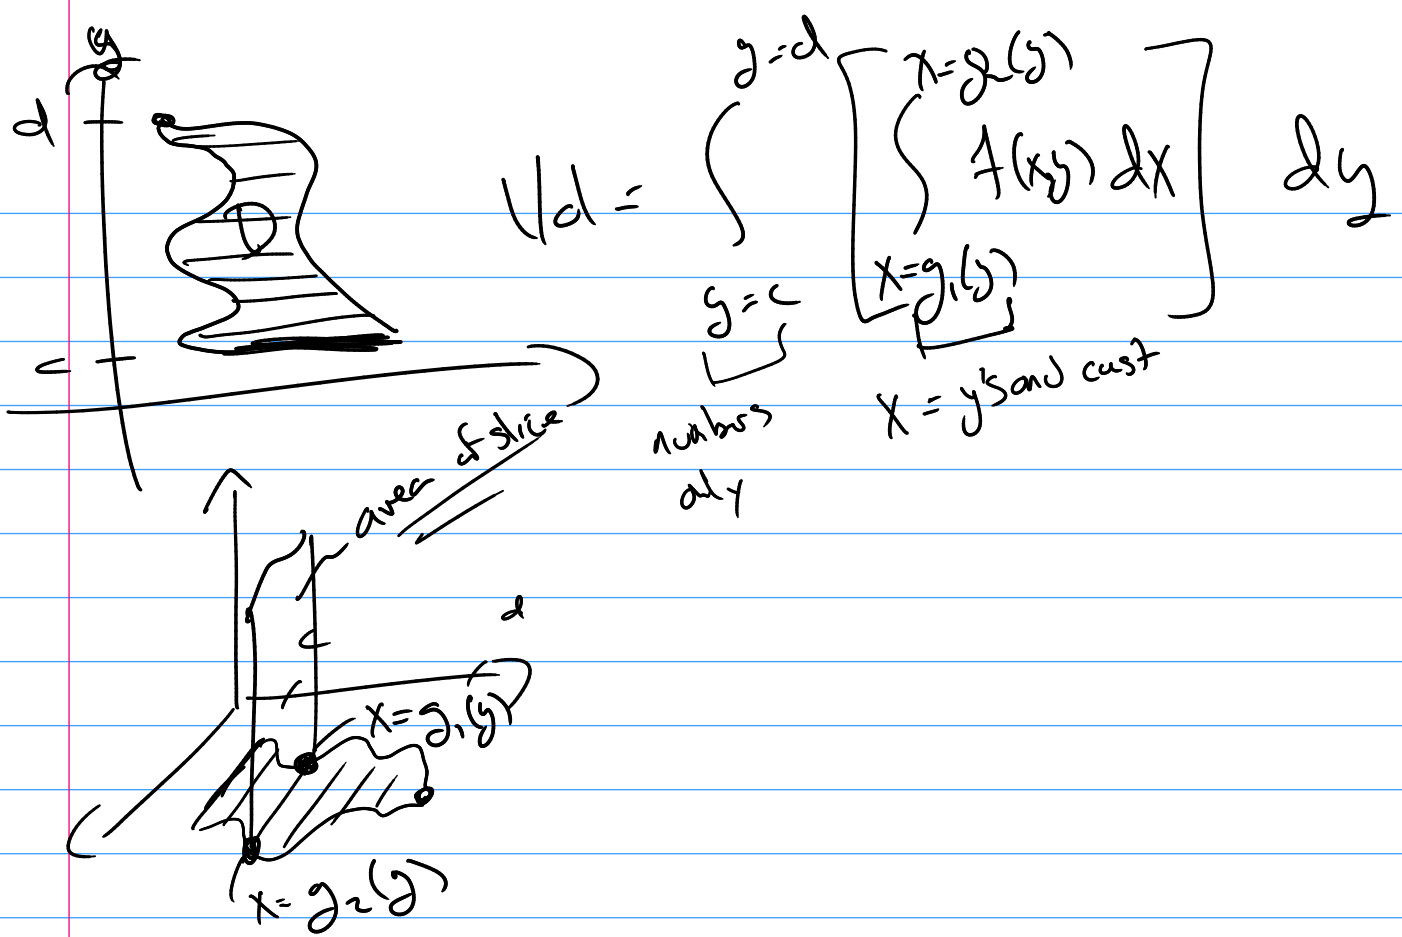 y
d
D
c
Vol = ∫ y=d y=c [ ∫ x=g₂(y) x=g₁(y) f(x,y) dx ] dy
numbers
only
x = y's and const
area of slice
c
d
x=g₁(y)
x=g₂(y)